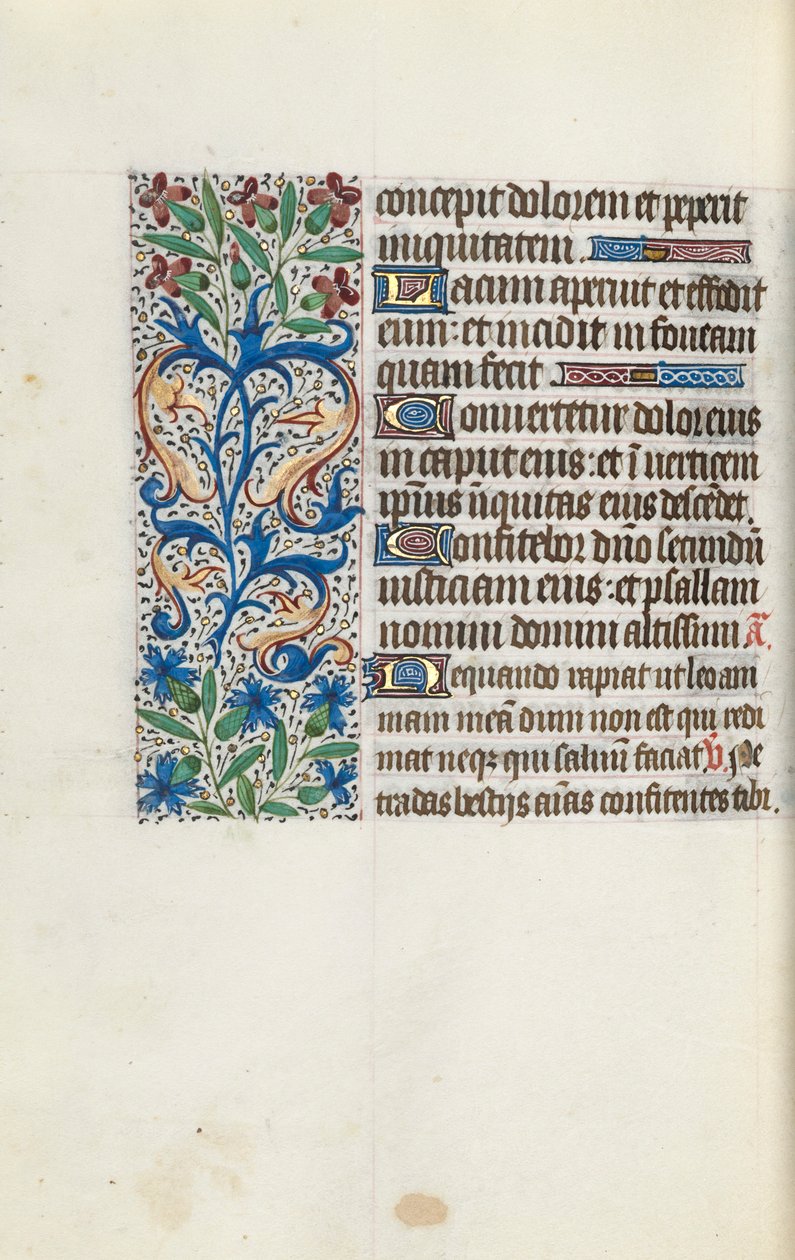 concepit dolorem et peperit
iniquitatem.
Lacum aperuit et effodit
eum: et incidit in foueam
quam fecit.
Conuertetur dolor eius
in caput eius: et ī uerticem
ip̄ius iniquitas eius descēdet.
Confitebor dn̄o secundū
iusticiam eius: et psallam
nomini domini altissimi Ā.
Nequando rapiat ut leo ani
mam meā dum non est qui redi
mat neqꝫ qui saluū faciat V̄. Ne
tradas bestijs aīas confitentes tibi.